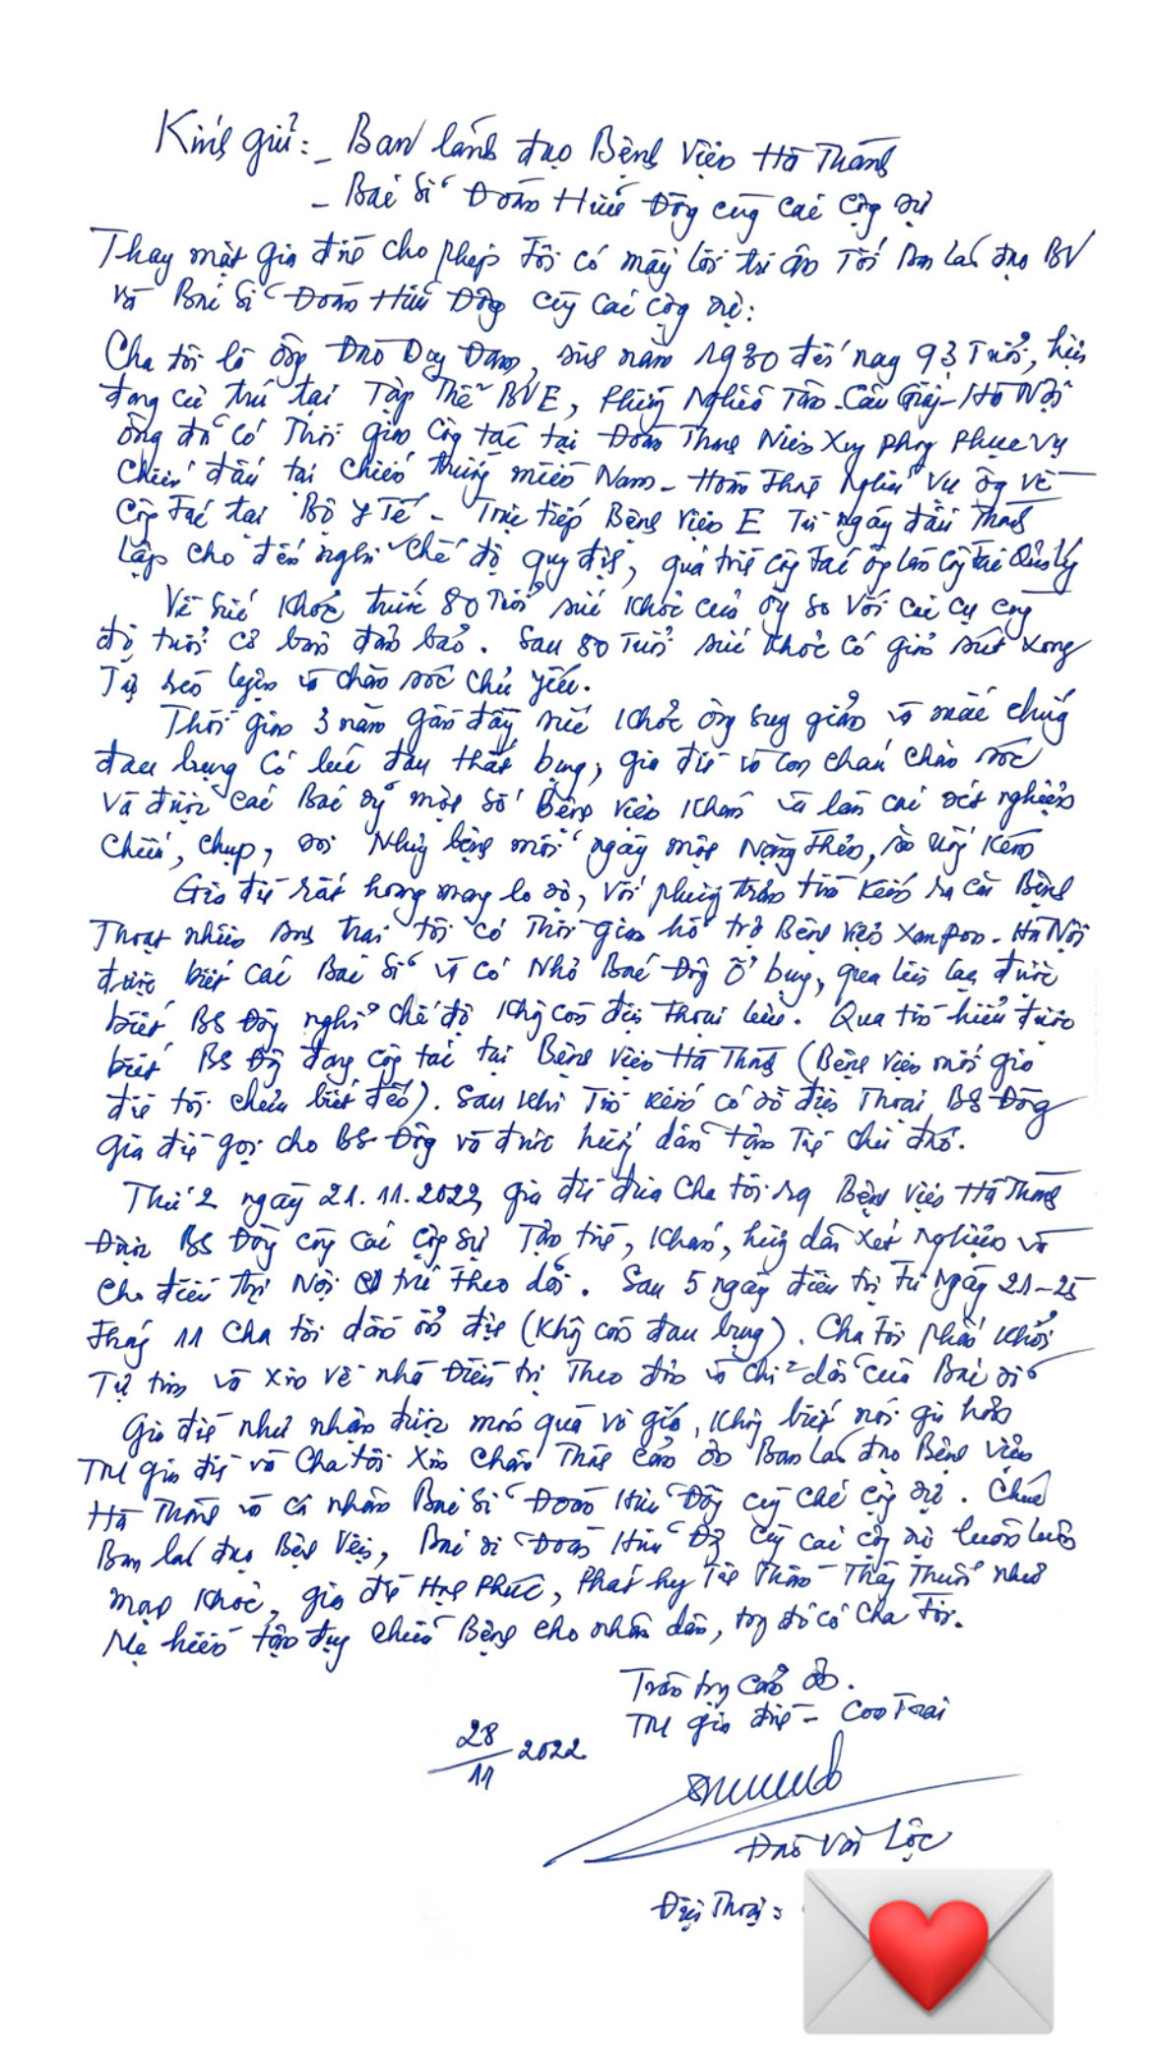 Kính gửi: - Ban lãnh đạo Bệnh viện Hà Thành
- Bác sĩ Đoàn Hữu Đông cùng các cộng sự
Thay mặt gia đình cho phép tôi có mấy lời tri ân tới Ban lãnh đạo BV
và Bác sĩ Đoàn Hữu Đông cùng các cộng sự:
Cha tôi là ông Đào Duy, sinh năm 1930 đến nay 93 tuổi, hiện
đang cư trú tại Tập thể BV E, phường Nghĩa Tân - Cầu Giấy - Hà Nội
ông đã có thời gian công tác tại Đoàn Thanh Niên Xung phong phục vụ
chiến đấu tại chiến trường miền Nam - Hoàn thành nghĩa vụ ông về
công tác tại Bộ Y Tế - Trực tiếp Bệnh viện E Từ ngày đầu thành
lập cho đến nghỉ chế độ quy định, quá trình công tác ông làm công tác Quản lý
Về sức khỏe trước 80 tuổi sức khỏe của ông so với các cụ cùng
độ tuổi cơ bản đảm bảo. Sau 80 tuổi sức khỏe có giảm sút xong
Tự rèn luyện và chăm sóc chủ yếu.
Thời gian 3 năm gần đây sức khỏe ông suy giảm và mắc chứng
đau bụng có lúc đau thắt bụng, gia đình và con cháu chăm sóc
và được các Bác sỹ một số bệnh viện khám và làm các xét nghiệm
chiếu, chụp, soi Nhưng bệnh mỗi ngày một nặng thêm, ăn uống kém
Gia đình rất hoang mang lo sợ, với phương trâm tìm kiếm ra căn Bệnh
Thoạt nhiên Anh trai tôi có thời gian hỗ trợ Bệnh viện Xanpon - Hà Nội
được biết các Bác sĩ và có Nhờ Bác Đông ổ bụng, qua liên lạc được
biết BS Đông nghỉ chế độ không còn điện thoại liên. Qua tìm hiểu được
biết BS Đông đang công tác tại Bệnh viện Hà Thành (Bệnh viện mới gia
đình tôi chưa biết đến). Sau khi Tìm kiếm có số điện thoại BS Đông
Gia đình gọi cho BS Đông và được hướng dẫn tận tình chu đáo.
Thứ 2 ngày 21.11.2022 gia đình đưa cha tôi ra Bệnh viện Hà Thành
Được BS Đông cùng các cộng sự Tận tình, khám, hướng dẫn xét nghiệm và
cho điều trị Nội trú theo dõi. Sau 5 ngày điều trị từ ngày 21-25
tháng 11 cha tôi dần ổn định (không còn đau bụng). Cha tôi phấn khởi
Tự tin và xin về nhà Điều trị theo đơn và chỉ dẫn của Bác sĩ
Gia đình như nhận được món quà vô giá, không biết nói gì hơn
TM gia đình và Cha tôi Xin chân thành cảm ơn Ban lãnh đạo Bệnh viện
Hà Thành và cá nhân Bác sĩ Đoàn Hữu Đông cùng các cộng sự. Chúc
Ban lãnh đạo Bệnh viện, Bác sĩ Đoàn Hữu Đông cùng các cộng sự luôn luôn
mạnh khỏe, gia đình Hạnh phúc, phát huy Tinh thần Thầy thuốc như
Mẹ hiền tận dụng chữa Bệnh cho nhân dân, trong đó có Cha tôi.
Trân trọng cảm ơn.
TM gia đình - Con trai
28/11 2022
Đào Văn Lộc
Điện thoại: